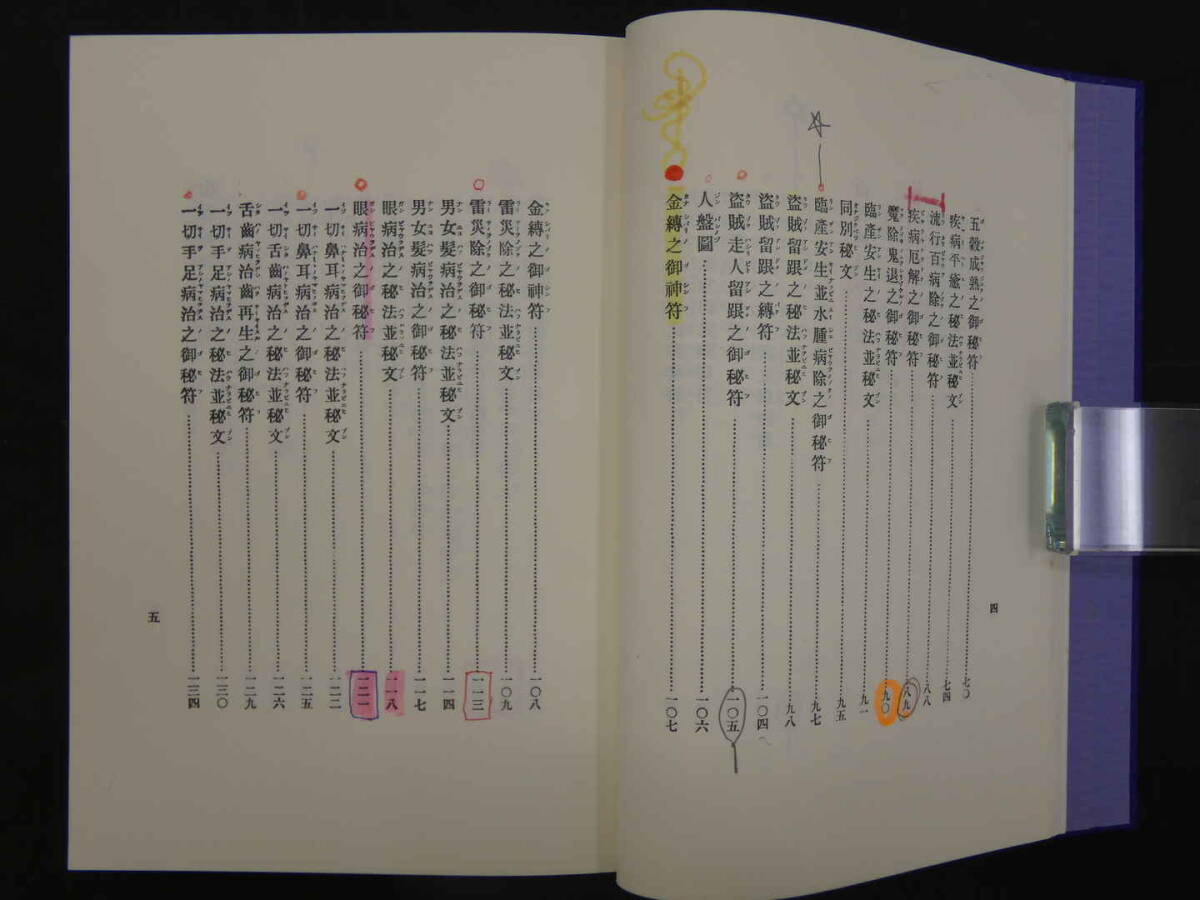 五穀成熟之御秘符……七〇
疾病平癒之秘法並秘文……七四
流行百病除之御秘符……八八
疾病厄解之御秘符……八九
魔除鬼退之御秘符……九〇
臨産安生之秘法並秘文……九一
同別秘文……九五
臨産安生並水腫病除之御秘符……九七
盜賊留跟之秘法並秘文……九八
盜賊留跟之縛符……一〇四
盜賊走人留跟之御秘符……一〇五
人盤圖……一〇六
金縛之御神符……一〇七
四
金縛之御神符……一〇八
雷災除之秘法並秘文……一〇九
雷災除之御秘符……一一三
男女髮病治之秘法並秘文……一一四
男女髮病治之御秘符……一一七
眼病治之秘法並秘文……一一八
眼病治之御秘符……一二一
一切鼻耳病治之秘法並秘文……一二二
一切鼻耳病治之御秘符……一二五
一切舌齒病治之秘法並秘文……一二六
舌齒病治齒再生之御秘符……一二九
一切手足病治之秘法並秘文……一三〇
一切手足病治之御秘符……一三四
五